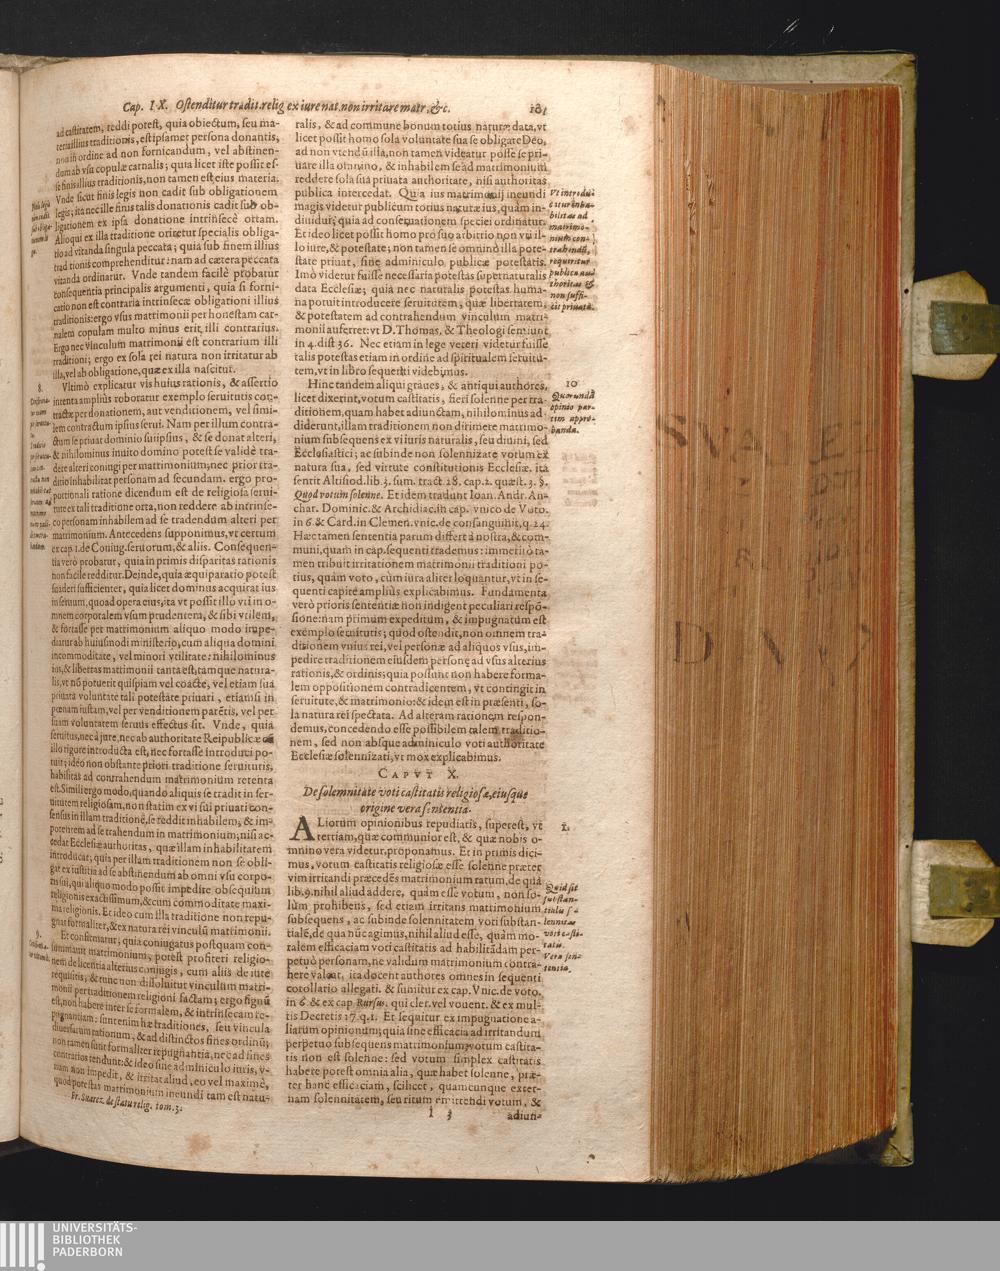 Cap. IX. Ostenditur tradit. relig ex iure nat. non irritare matr. &c. 101
ad castitatem, reddi potest, quia obiectum, seu ma-
teria illius traditionis, est ipsamet persona donantis,
non in ordine ad non fornicandum, vel abstinen-
dum ab vsu copulæ carnalis; quia licet iste possit es-
se finis illius traditionis, non tamen est eius materia.
Vnde sicut finis legis non cadit sub obligationem
legis; ita nec ille finis talis donationis cadit sub ob-
ligationem ex ipsa donatione intrinsecè ortam.
Alioqui ex illa traditione oriretur specialis obliga-
tio ad vitanda singula peccata; quia sub finem illius
traditionis comprehenditur: nam ad cætera peccata
vitanda ordinatur. Vnde tandem facilè probatur
consequentia principalis argumenti, quia si forni-
catio non est contraria intrinsecæ obligationi illius
traditionis: ergo vsus matrimonii per honestam car-
nalem copulam multo minus erit illi contrarius.
Ergo nec vinculum matrimonii est contrarium illi
traditioni; ergo ex sola rei natura non irritatur ab
illa, vel ab obligatione, quæ ex illa nascitur.
8.
Vltimò explicatur vis huius rationis, & assertio
intenta ampliùs roboratur exemplo seruitutis con-
tractæ per donationem, aut venditionem, vel simi-
lem contractum ipsius serui. Nam per illum contra-
ctum se priuat dominio sui ipsius, & se donat alteri,
& nihilominus inuito domino potest se validè tra-
dere alteri coniugi per matrimonium; nec prior tra-
ditio inhabilitat personam ad secundam. ergo pro-
portionali ratione dicendum est de religiosa serui-
tute ex tali traditione orta, non reddere ab intrinse-
co personam inhabilem ad se tradendum alteri per
matrimonium. Antecedens supponimus, vt certum
ex cap. 1. de Coniug. seruorum, & aliis. Consequen-
tia verò probatur, quia in primis disparitas rationis
non facile redditur. Deinde, quia æquiparatio potest
suaderi sufficienter, quia licet dominus acquirat ius
in seruum, quoad opera eius, ita vt possit illo vti in o-
mnem corporalem vsum prudentem, & sibi vtilem,
& fortasse per matrimonium aliquo modo impe-
diatur ab huiusmodi ministerio, cum aliqua domini
incommoditate, vel minori vtilitate: nihilominus
ius, & libertas matrimonii tanta est, tamque natura-
lis, vt nõ potuerit quispiam vel coactè, vel etiam sua
priuata voluntate tali potestate priuari, etiamsi in
pœnam iustam, vel per venditionem parētis, vel per
suam voluntatem seruus effectus sit. Vnde, quia
seruitus, nec à jure, nec ab authoritate Reipublicæ cũ
illo rigore introducta est, nec fortasse introduci po-
tuit; ideo non obstante priori traditione seruitutis,
habilitas ad contrahendum matrimonium retenta
est. Simili ergo modo, quando aliquis se tradit in ser-
uitutem religiosam, non statim ex vi sui priuati con-
sensus in illam traditionē, se reddit inhabilem, & im-
potentem ad se trahendum in matrimonium; nisi ac-
cedat Ecclesiæ authoritas, quæ illam inhabilitatem
introducat; quia per illam traditionem non se obli-
gat ex iustitia ad se abstinendum ab omni vsu corpo-
ris sui, qui aliquo modo possit impedire obsequium
religionis exactissimum, & cum commoditate maxi-
ma religionis. Et ideo cum illa traditione non repu-
gnat formaliter, & ex natura rei vinculũ matrimonii.
9.
Et confirmatur; quia coniugatus postquam con-
summauit matrimonium, potest profiteri religio-
nem de licentia alterius coniugis, cum aliis de iure
requisitis, & tunc non dissoluitur vinculum matri-
monii per traditionem religioni factam; ergo signũ
est, non habere inter se formalem, & intrinsecam re-
pugnantiam: sunt enim hæ traditiones, seu vincula
diuersarum rationum, & ad distinctos fines ordinũ;
non tamen sunt formaliter repugnantia, nec ad fines
contrarios tendunt: & ideo sine adminiculo iuris, v-
num non impedit, & irritat aliud, eo vel maximè,
quod potestas matrimonium ineundi tam est natu-
Fr. Suarez. de statu relig. tom. 3.
ralis, & ad commune bonum totius naturæ data, vt
licet possit homo sola voluntate sua se obligare Deo,
ad non vtendũ illa, non tamen videatur posse se pri-
uare illa omnino, & inhabilem se ad matrimonium
reddere sola sua priuata authoritate, nisi authoritas
publica intercedat. Quia ius matrimonij ineundi
magis videtur publicum totius naturæ ius, quàm in-
diuidui; quia ad conseruationem speciei ordinatur.
Et ideo licet possit homo pro suo arbitrio non vti il-
lo iure, & potestate; non tamen se omninò illa pote-
state priuat, sine adminiculo publicæ potestatis.
Imò videtur fuisse necessaria potestas supernaturalis
data Ecclesiæ; quia nec naturalis potestas huma-
na potuit introducere seruitutem, quæ libertatem,
& potestatem ad contrahendum vinculum matri-
monii auferret: vt D. Thomas, & Theologi sentiunt
in 4. dist 36. Nec etiam in lege veteri videtur fuisse
talis potestas etiam in ordine ad spiritualem seruitu-
tem, vt in libro sequenti videbimus.
Vt introdu-
catur inha-
bilitas ad
matrimo-
nium con-
trahendũ,
requiritur
publica au-
thoritas &
non suffi-
cit priuata.
Hinc tandem aliqui graues, & antiqui authores,
licet dixerint, votum castitatis, fieri solenne per tra-
ditionem, quam habet adiunctam, nihilominus ad-
diderunt, illam traditionem non dirimere matrimo-
nium subsequens ex vi iuris naturalis, seu diuini, sed
Ecclesiastici; ac subinde non solennizate votum ex
natura sua, sed virtute constitutionis Ecclesiæ. ita
sentit Altisiod. lib. 3. sum. tract. 28. cap. 2. quæst. 3. §.
Quod votum solenne. Et idem tradunt Ioan. Andr. An-
char. Dominic. & Archidiac. in cap. vnico de Voto.
in 6. & Card. in Clemen. vnic. de consanguinit. q. 24.
Hæc tamen sententia parum differt à nostra, & com-
muni, quam in cap. sequenti trademus: immeritò ta-
men tribuit irritationem matrimonii traditioni po-
tius, quàm voto, cùm iura aliter loquantur, vt in se-
quenti capite ampliùs explicabimus. Fundamenta
verò prioris sententiæ non indigent peculiari respō-
sione: nam primum expeditum, & impugnatum est
exemplo seruitutis; quod ostendit, non omnem tra-
ditionem vnius rei, vel personæ ad aliquos vsus, im-
pedire traditionem eiusdem personę ad vsus alterius
rationis, & ordinis; quia possunt non habere forma-
lem oppositionem contradicentem, vt contingit in
seruitute, & matrimonio: & idem est in præsenti, so-
la natura rei spectata. Ad alteram rationem respon-
demus, concedendo esse possibilem talem traditio-
nem, sed non absque adminiculo voti authoritate
Ecclesiæ solennizati, vt mox explicabimus.
10
Quorundã
opinio par-
tim appro-
banda.
CAPVT X.
De solemnitate voti castitatis religiosæ, eiusque
origine vera sententia.
ALiorum opinionibus repudiatis, superest, vt
tertiam, quæ communior est, & quæ nobis o-
mnino vera videtur, proponamus. Et in primis dici-
mus, votum castitatis religiosæ esse solenne præter
vim irritandi præcedẽs matrimonium ratum, de qua
lib. 9. nihil aliud addere, quàm esse votum, non so-
lùm prohibens, sed etiam irritans matrimonium
subsequens, ac subinde solennitatem voti substan-
tialē, de qua nũc agimus, nihil aliud esse, quàm mo-
ralem efficaciam voti castitatis ad habilitādam per-
petuò personam, ne validum matrimonium contra-
here valeat, ita docent authores omnes in sequenti
corollario allegati. & sumitur ex cap. Vnic. de voto.
in 6 & ex cap. Rursus. qui cler. vel vouent. & ex mul-
tis Decretis 27. q. 1. Et sequitur ex impugnatione a-
liarum opinionum; quia sine efficacia ad irritandum
perpetuo subsequens matrimonium, votum castita-
tis non est solenne: sed votum simplex castitatis
habere potest omnia alia, quæ habet solenne, præ-
ter hanc efficaciam, scilicet, quamcunque exter-
nam solennitatem, seu ritum emittendi votum, &
1.
Quid sit
substan-
tialis s-
lennitas
voti casti-
tatis.
Vera sen-
tentia.
I 3 adiun-
UNIVERSITÄTS-
BIBLIOTHEK
PADERBORN